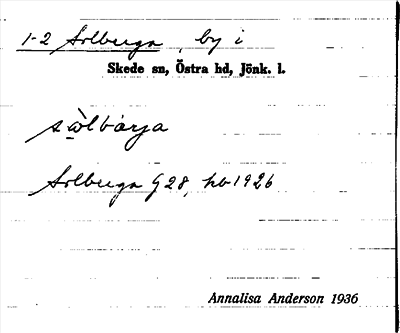 1-2 Solberga, by i
Skede sn, Östra hd, Jönk. l.
Solberga G 28, hb 1926
Annalisa Anderson 1936